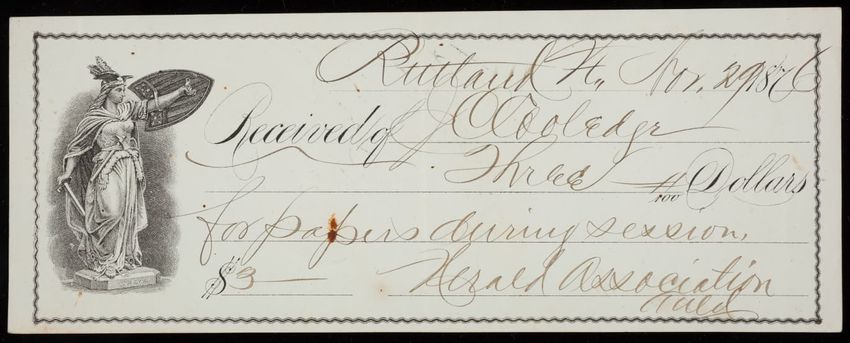 Rutland Vt., Nov. 29 1876
Received of J C Coolidge
Three — /100 Dollars
for papers during session.
$3 — Herald Association